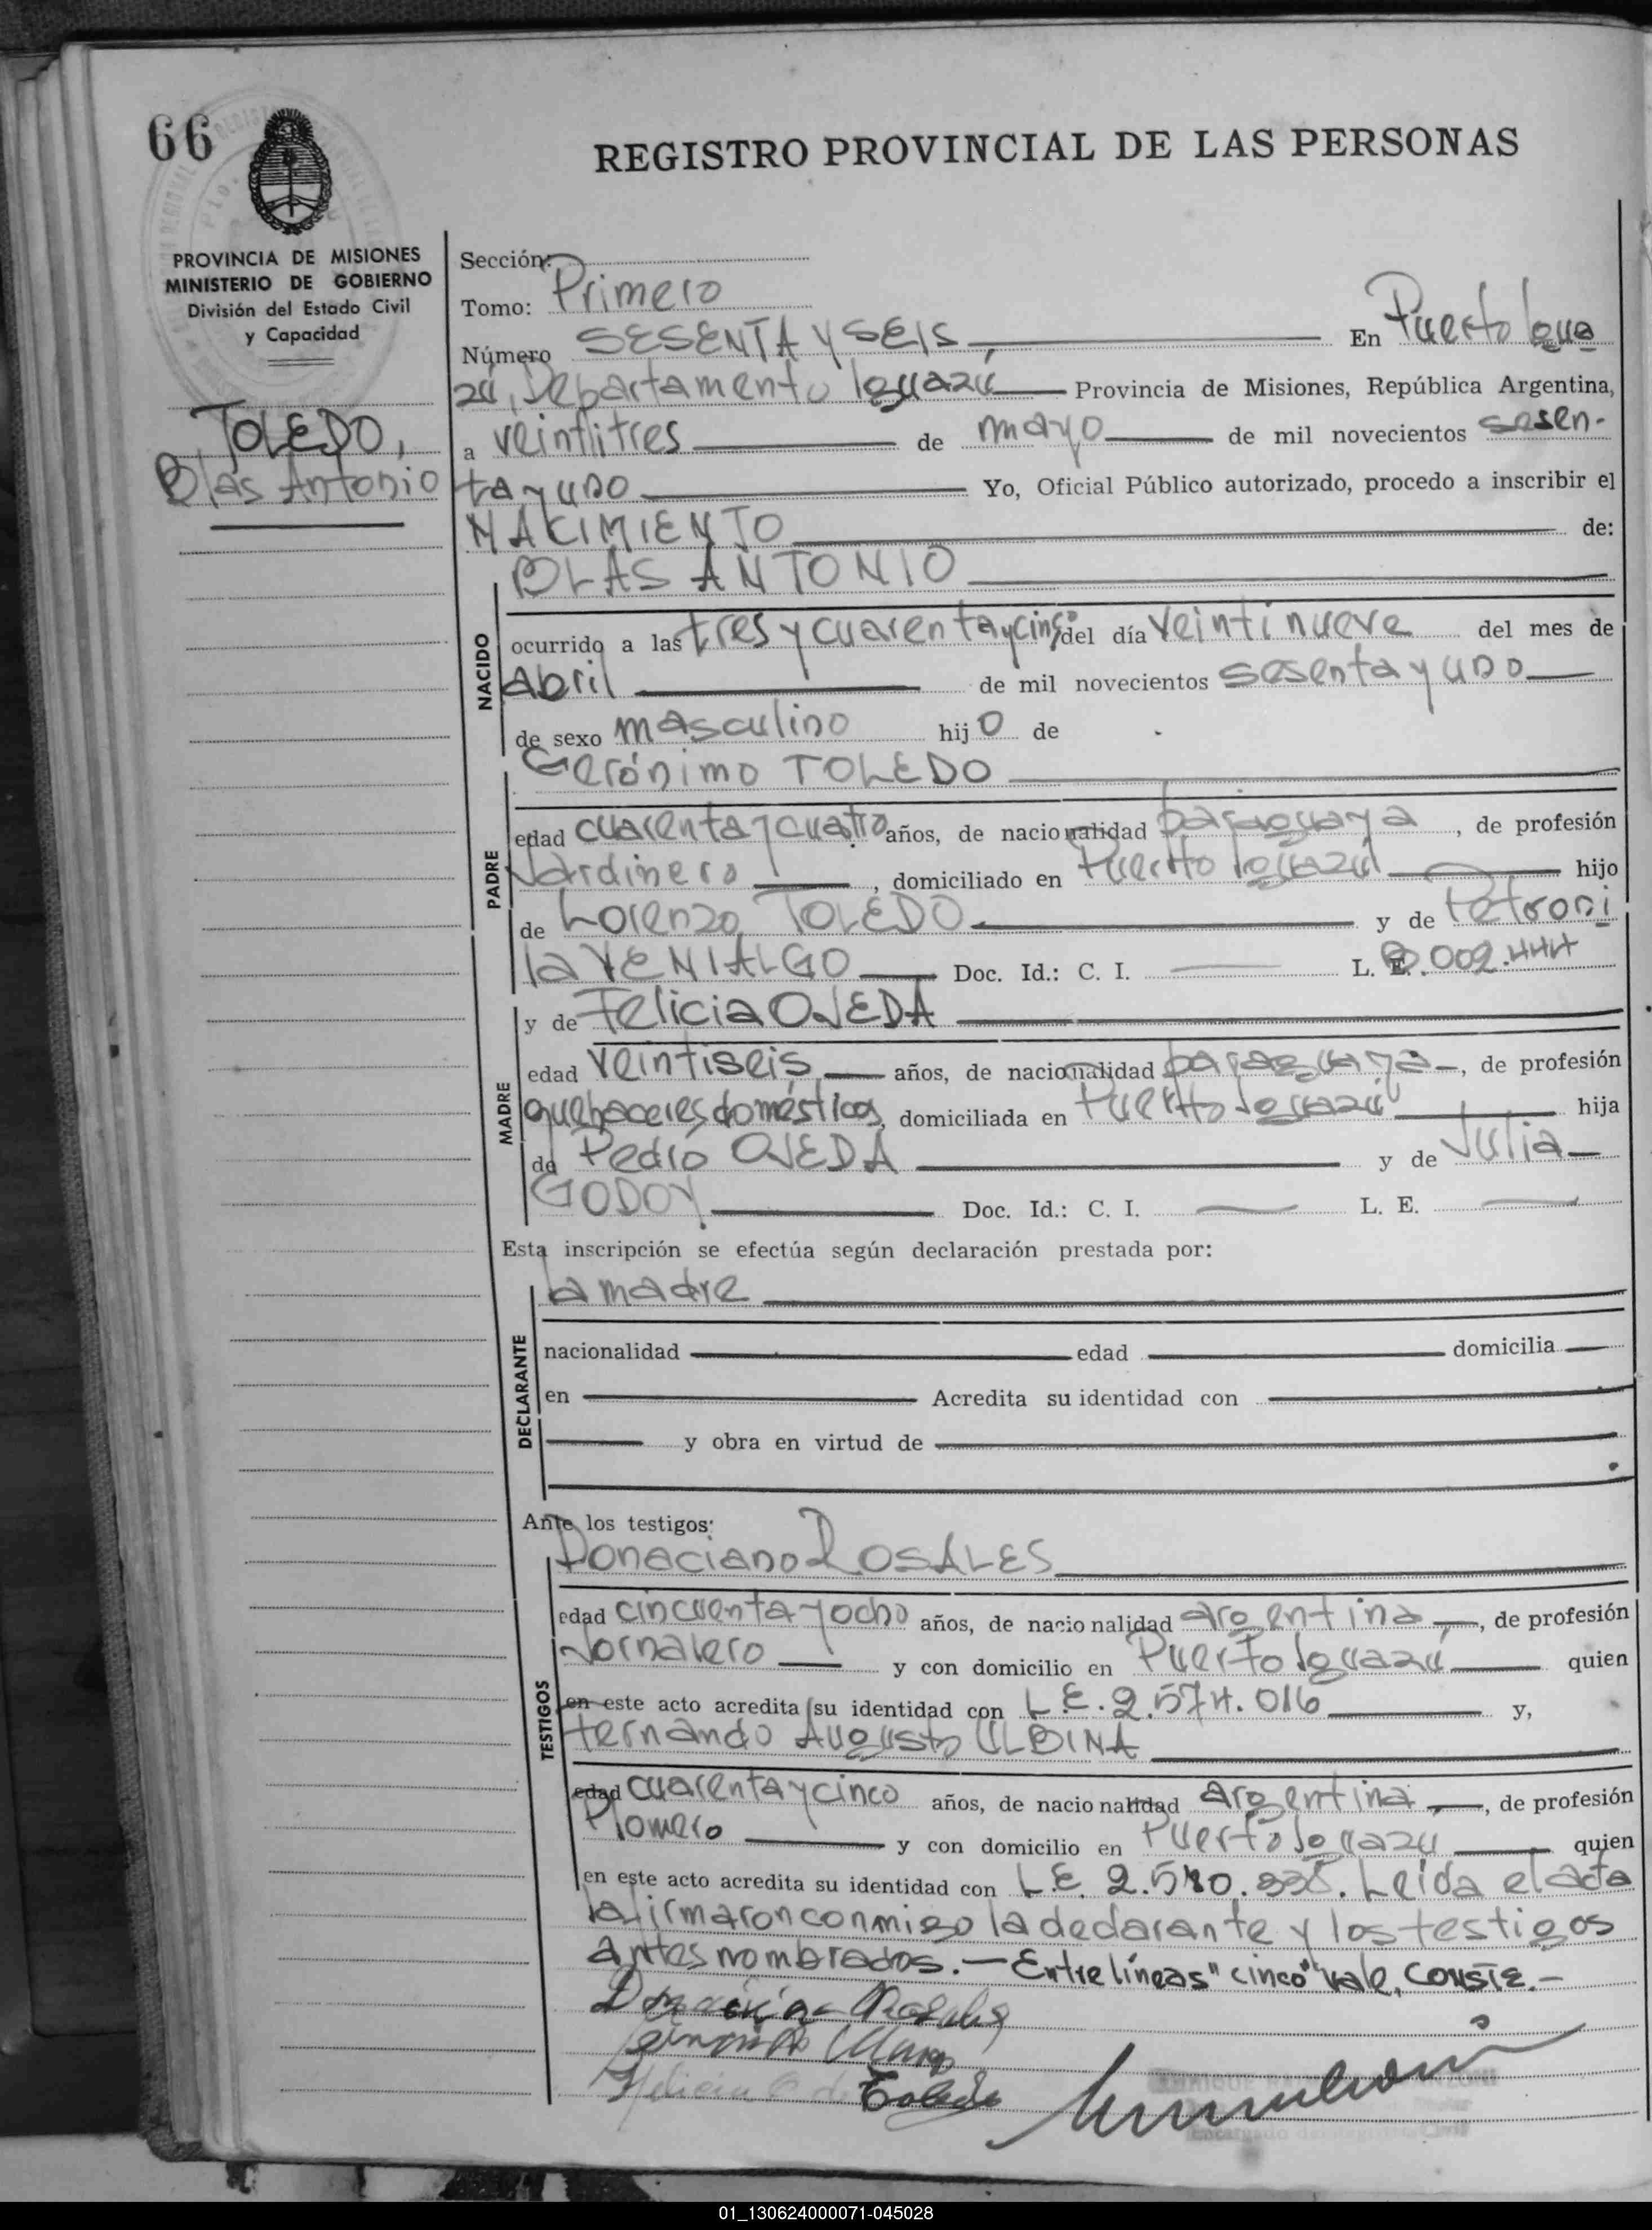 66
REGISTRO PROVINCIAL DE LAS PERSONAS
PROVINCIA DE MISIONES
MINISTERIO DE GOBIERNO
División del Estado Civil
y Capacidad
TOLEDO,
Blas Antonio
Sección:
Tomo: Primero
Número SESENTA Y SEIS, En Puerto Igua
zú, Departamento Iguazú Provincia de Misiones, República Argentina,
a veintitres de mayo de mil novecientos sesen-
ta y uno Yo, Oficial Público autorizado, procedo a inscribir el
NACIMIENTO de:
BLAS ANTONIO
NACIDO
ocurrido a las tres y cuarenta y cinco del día veintinueve del mes de
Abril de mil novecientos sesenta y uno
de sexo masculino hijo de
Gerónimo TOLEDO
PADRE
edad cuarenta y cuatro años, de nacionalidad paraguaya, de profesión
Jardinero, domiciliado en Puerto Iguazú hijo
de Lorenzo TOLEDO y de Petroni
la VENIALGO Doc. Id.: C. I. L. E. 002.444
y de Felicia OJEDA
MADRE
edad veintiseis años, de nacionalidad paraguaya, de profesión
quehaceres domésticos, domiciliada en Puerto Iguazú hija
de Pedro OJEDA y de Julia
GODOY Doc. Id.: C. I. L. E.
Esta inscripción se efectúa según declaración prestada por:
la madre
DECLARANTE
nacionalidad edad domicilia
en Acredita su identidad con
y obra en virtud de
Ante los testigos:
Donaciano ROSALES
TESTIGOS
edad cincuenta y ocho años, de nacionalidad argentina, de profesión
Jornalero y con domicilio en Puerto Iguazú quien
en este acto acredita su identidad con L.E. 2.574.016 y,
Hernando Augusto ULBINA
edad cuarenta y cinco años, de nacionalidad Argentina, de profesión
Plomero y con domicilio en Puerto Iguazú quien
en este acto acredita su identidad con L.E. Leída el acta
la firmaron conmigo la declarante y los testigos
antes nombrados.— Entre líneas "cinco" vale, CONSTE.-
Rosales
Felicia O de Toledo
01_130624000071-045028